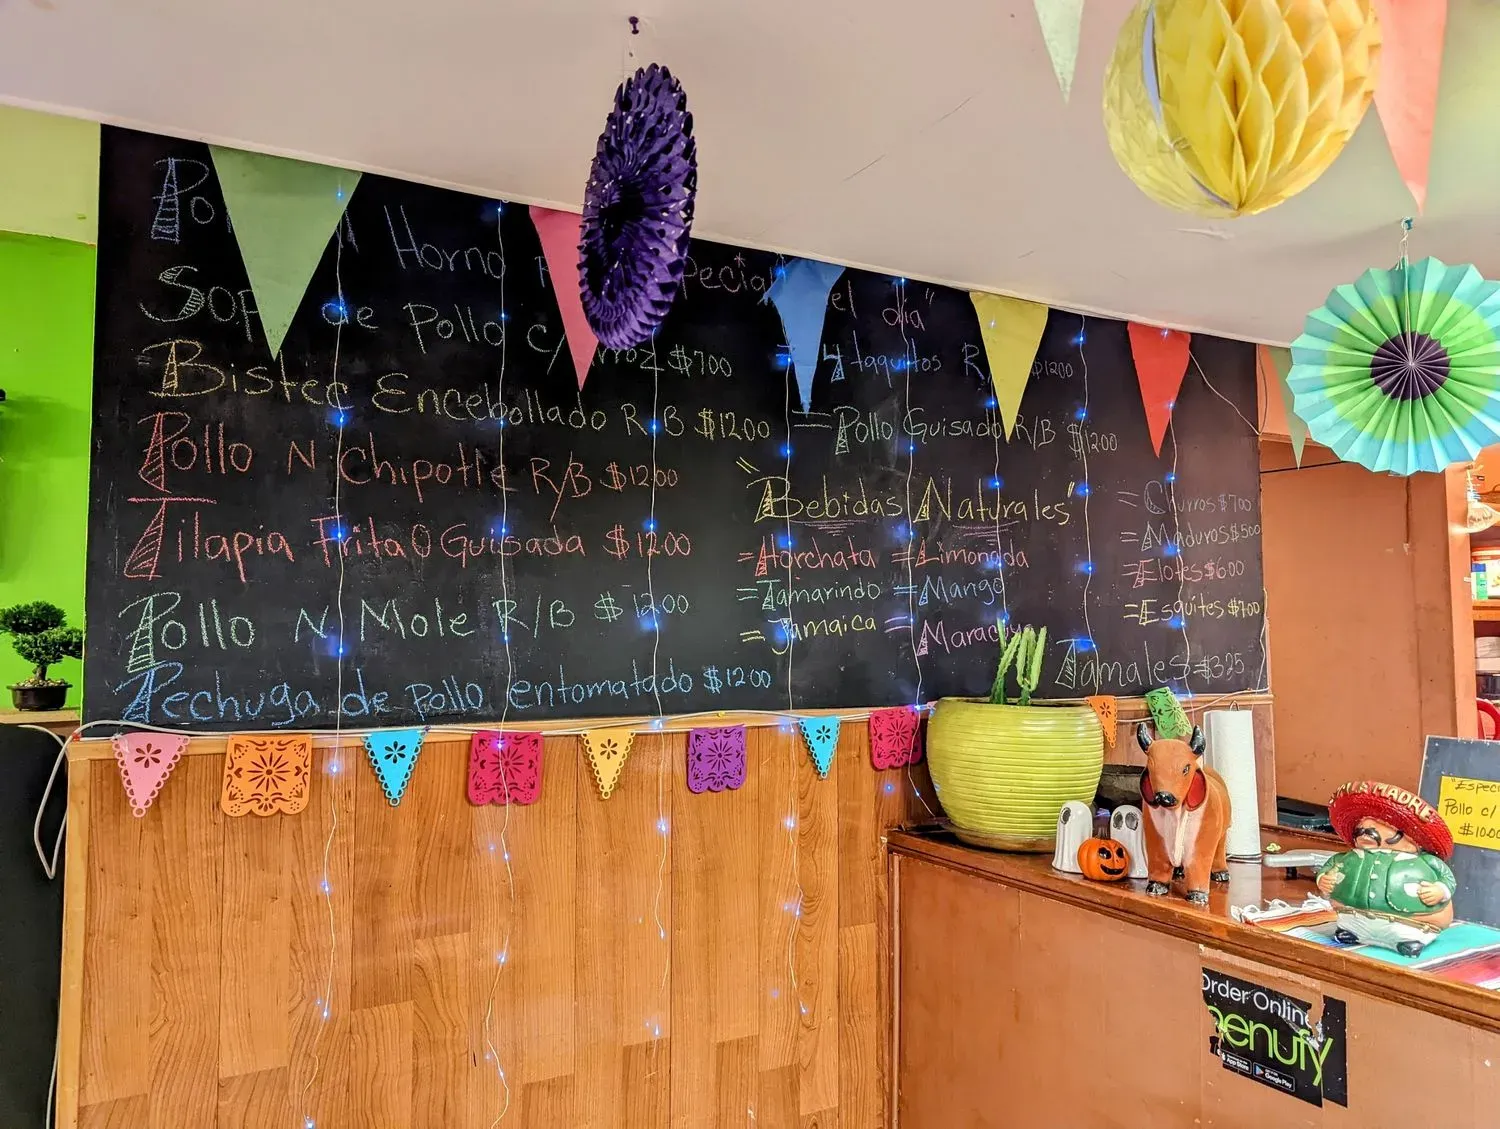 Horno
Sop de Pollo c/ $700
Bistec Encebollado R B $1200
Pollo N Chipotle R/B $1200
Tilapia Frita O Guisada $1200
Pollo N Mole R/B $1200
Pechuga de Pollo entomatado $1200
el día"
= 4 taquitos R $1200
= Pollo Guisado R/B $1200
"Bebidas Naturales"
= Horchata = Limonada
= Tamarindo = Mango
= Jamaica =
= Churros $700
= Maduros $500
= Elotes $600
= Esquites $700
Tamales = $325
MADRE
"Especi
Pollo c/
$10.00
Order Online
menufy
App Store
Google Play